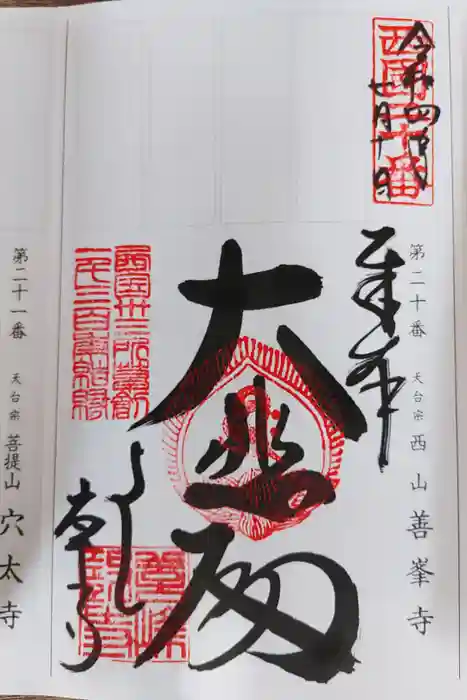 西國二十番
令和四年
七月十日
奉拝
第二十番 天台宗 西山 善峯寺
大悲殿
西国卅三所草創
一千三百年結縁
善峯寺
第二十一番 天台宗 菩提山 穴太寺